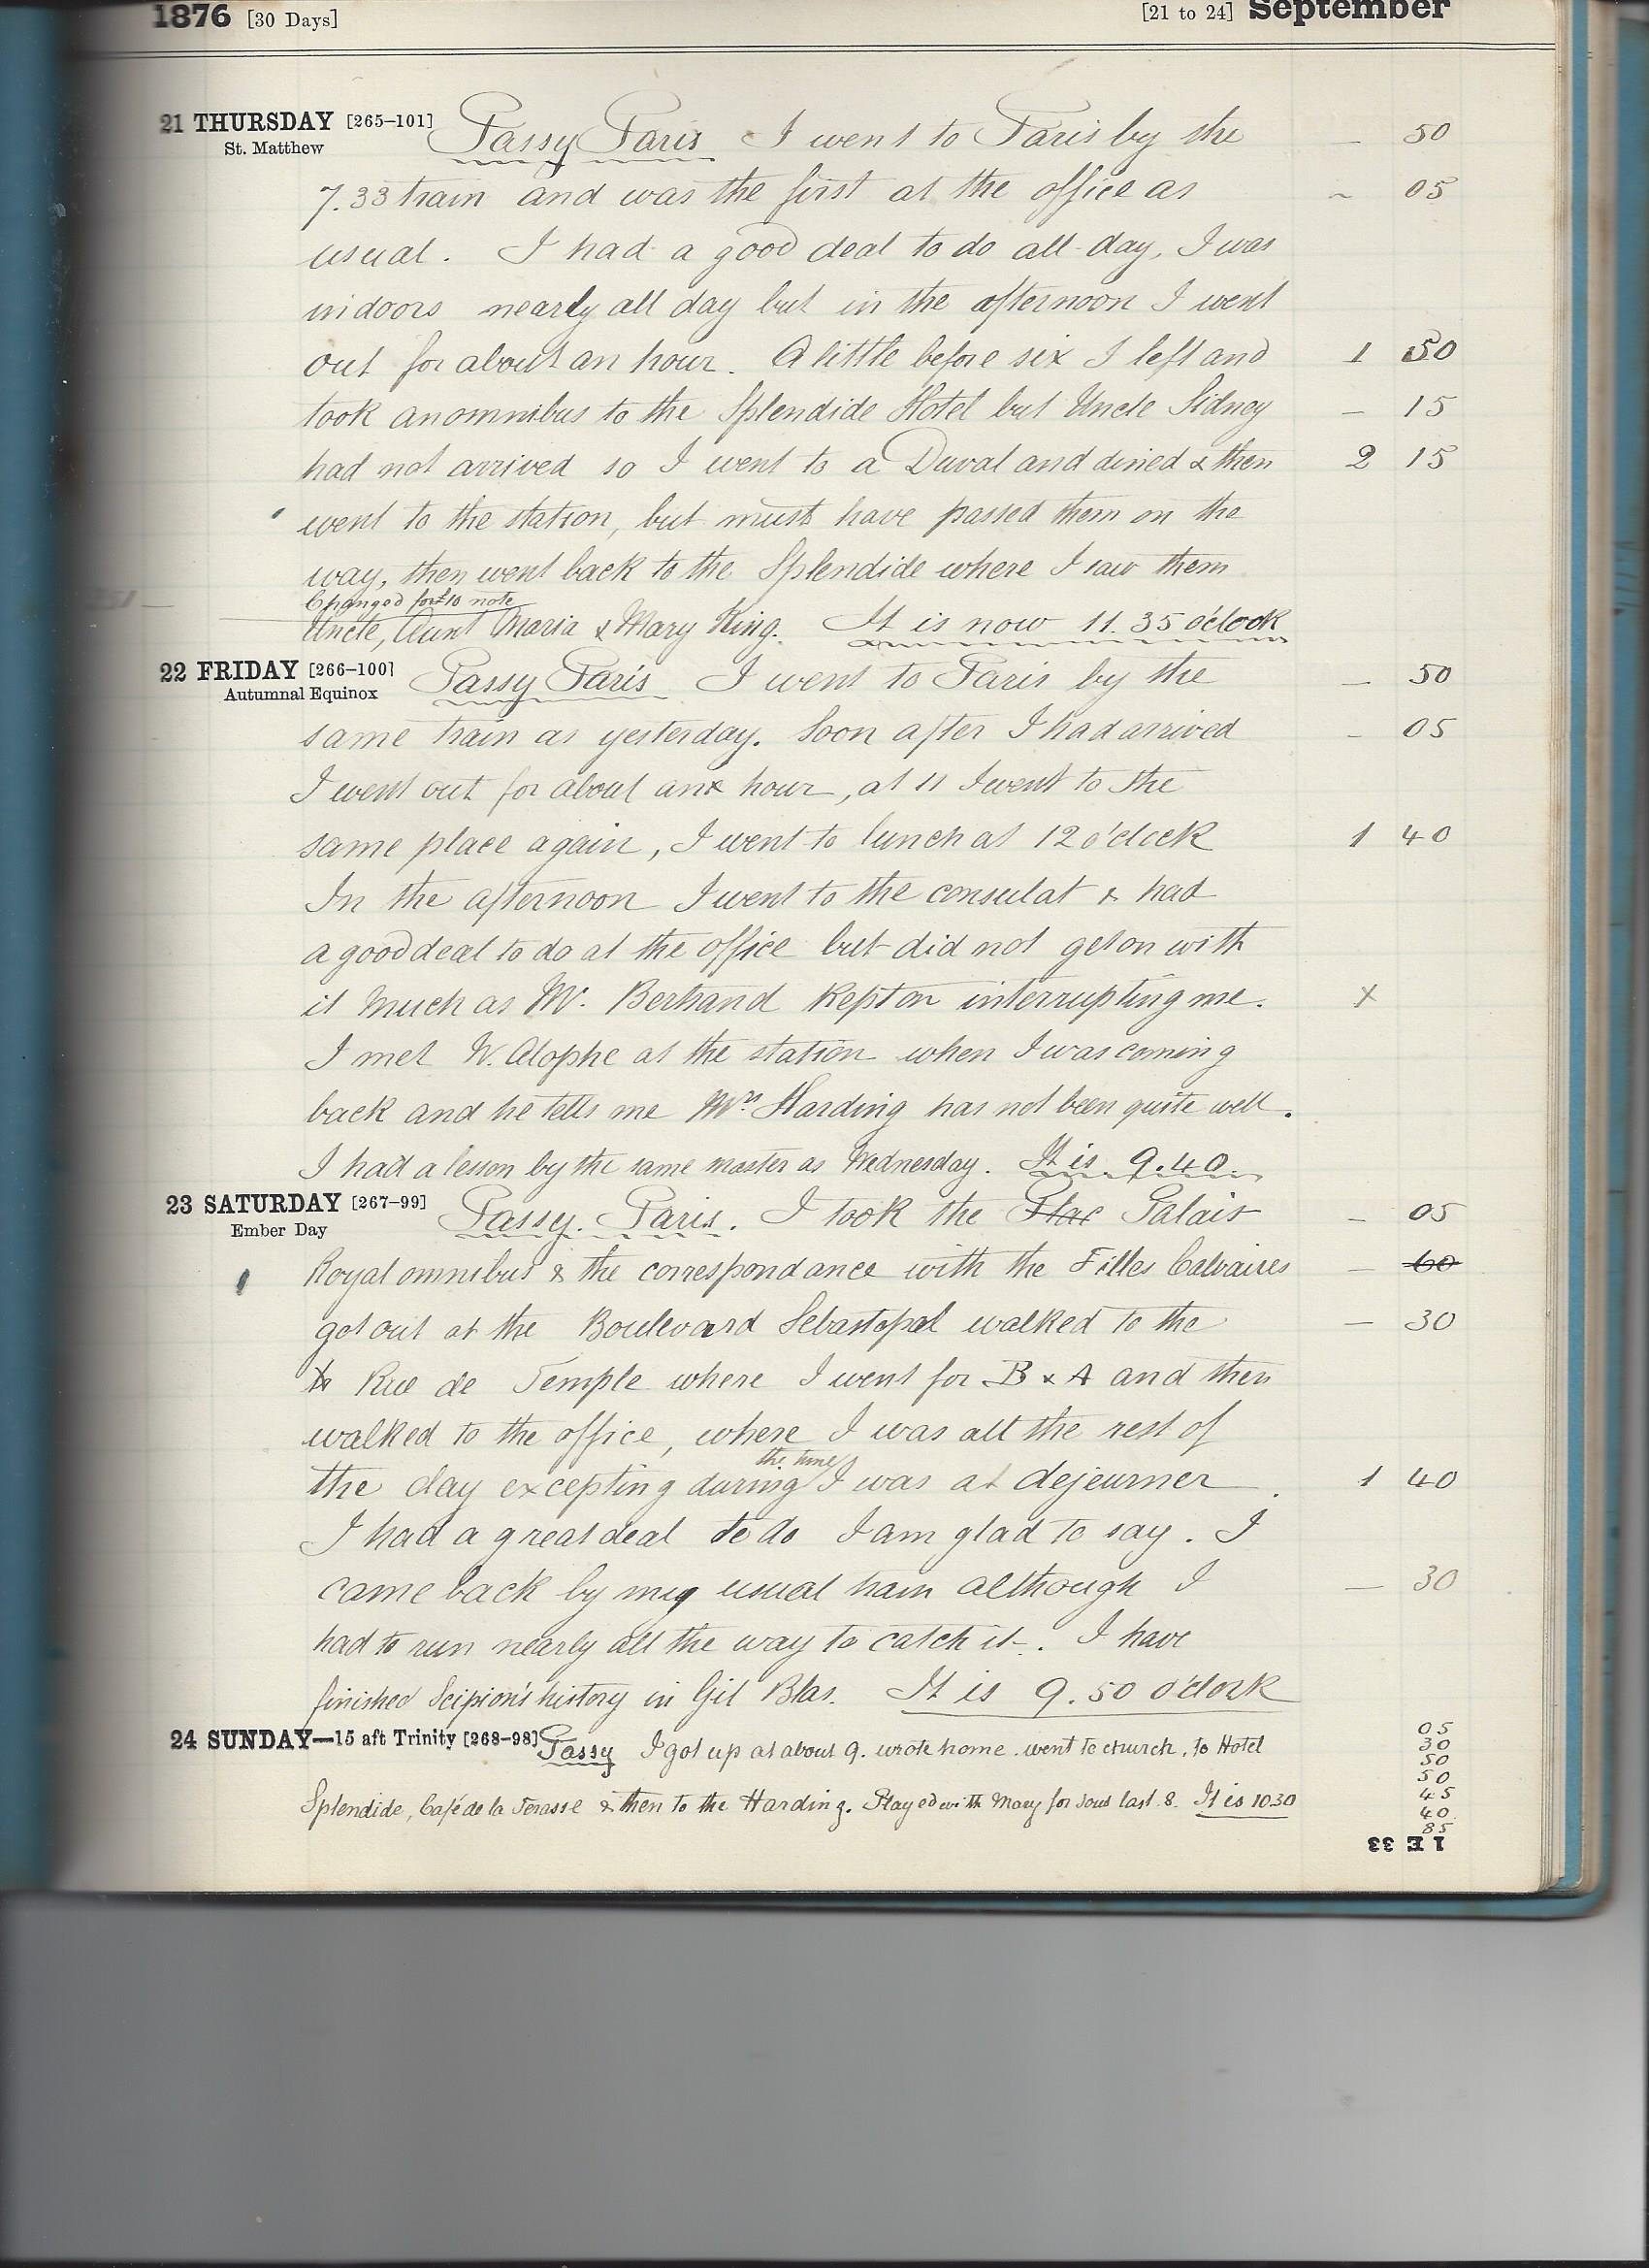 1876 [30 Days] [21 to 24] September
21 THURSDAY [265-101] Passy Paris I went to Paris by the — 50
St. Matthew
7.33 train and was the first at the office as ~ 05
usual. I had a good deal to do all day, I was
indoors nearly all day but in the afternoon I went
out for about an hour. A little before six I left and 1 50
took an omnibus to the Splendide Hotel but Uncle Sidney — 15
had not arrived so I went to a Duval and dined & then 2 15
went to the station, but must have passed them on the
way, then went back to the Splendide where I saw them
Changed for £10 note
Uncle, Aunt Maria & Mary King. It is now 11.35 o'clock
22 FRIDAY [266-100] Passy Paris I went to Paris by the — 50
Autumnal Equinox
same train as yesterday. Soon after I had arrived — 05
I went out for about an hour, at 11 I went to the
same place again, I went to lunch at 12 o'clock 1 40
In the afternoon I went to the consulat & had
a good deal to do at the office but did not get on with
it much as Mr. Bertrand kept on interrupting me. x
I met W. Alophe at the station when I was coming
back and he tells me Mrs. Harding has not been quite well.
I had a lesson by the same master as Wednesday. It is 9.40.
23 SATURDAY [267-99] Passy. Paris. I took the Plac Palais — 05
Ember Day
Royal omnibus & the correspondance with the Filles Calvaires — 60
got out at the Boulevard Sebastopol walked to the — 30
Rue de Temple where I went for B & A and then
walked to the office, where I was all the rest of
the time
the day excepting during I was at dejeurner . 1 40
I had a great deal to do I am glad to say. I
came back by my usual train although I — 30
had to run nearly all the way to catch it. I have
finished Scipion's history in Gil Blas. It is 9.50 o'clock
24 SUNDAY—15 aft Trinity [268-98] Passy I got up at about 9. wrote home. went to church, to Hotel
05
30
50
50
Splendide, Café de la Terasse & then to the Harding. Played with Mary for sous last 8. It is 10 30
45
40
85
1 E 33